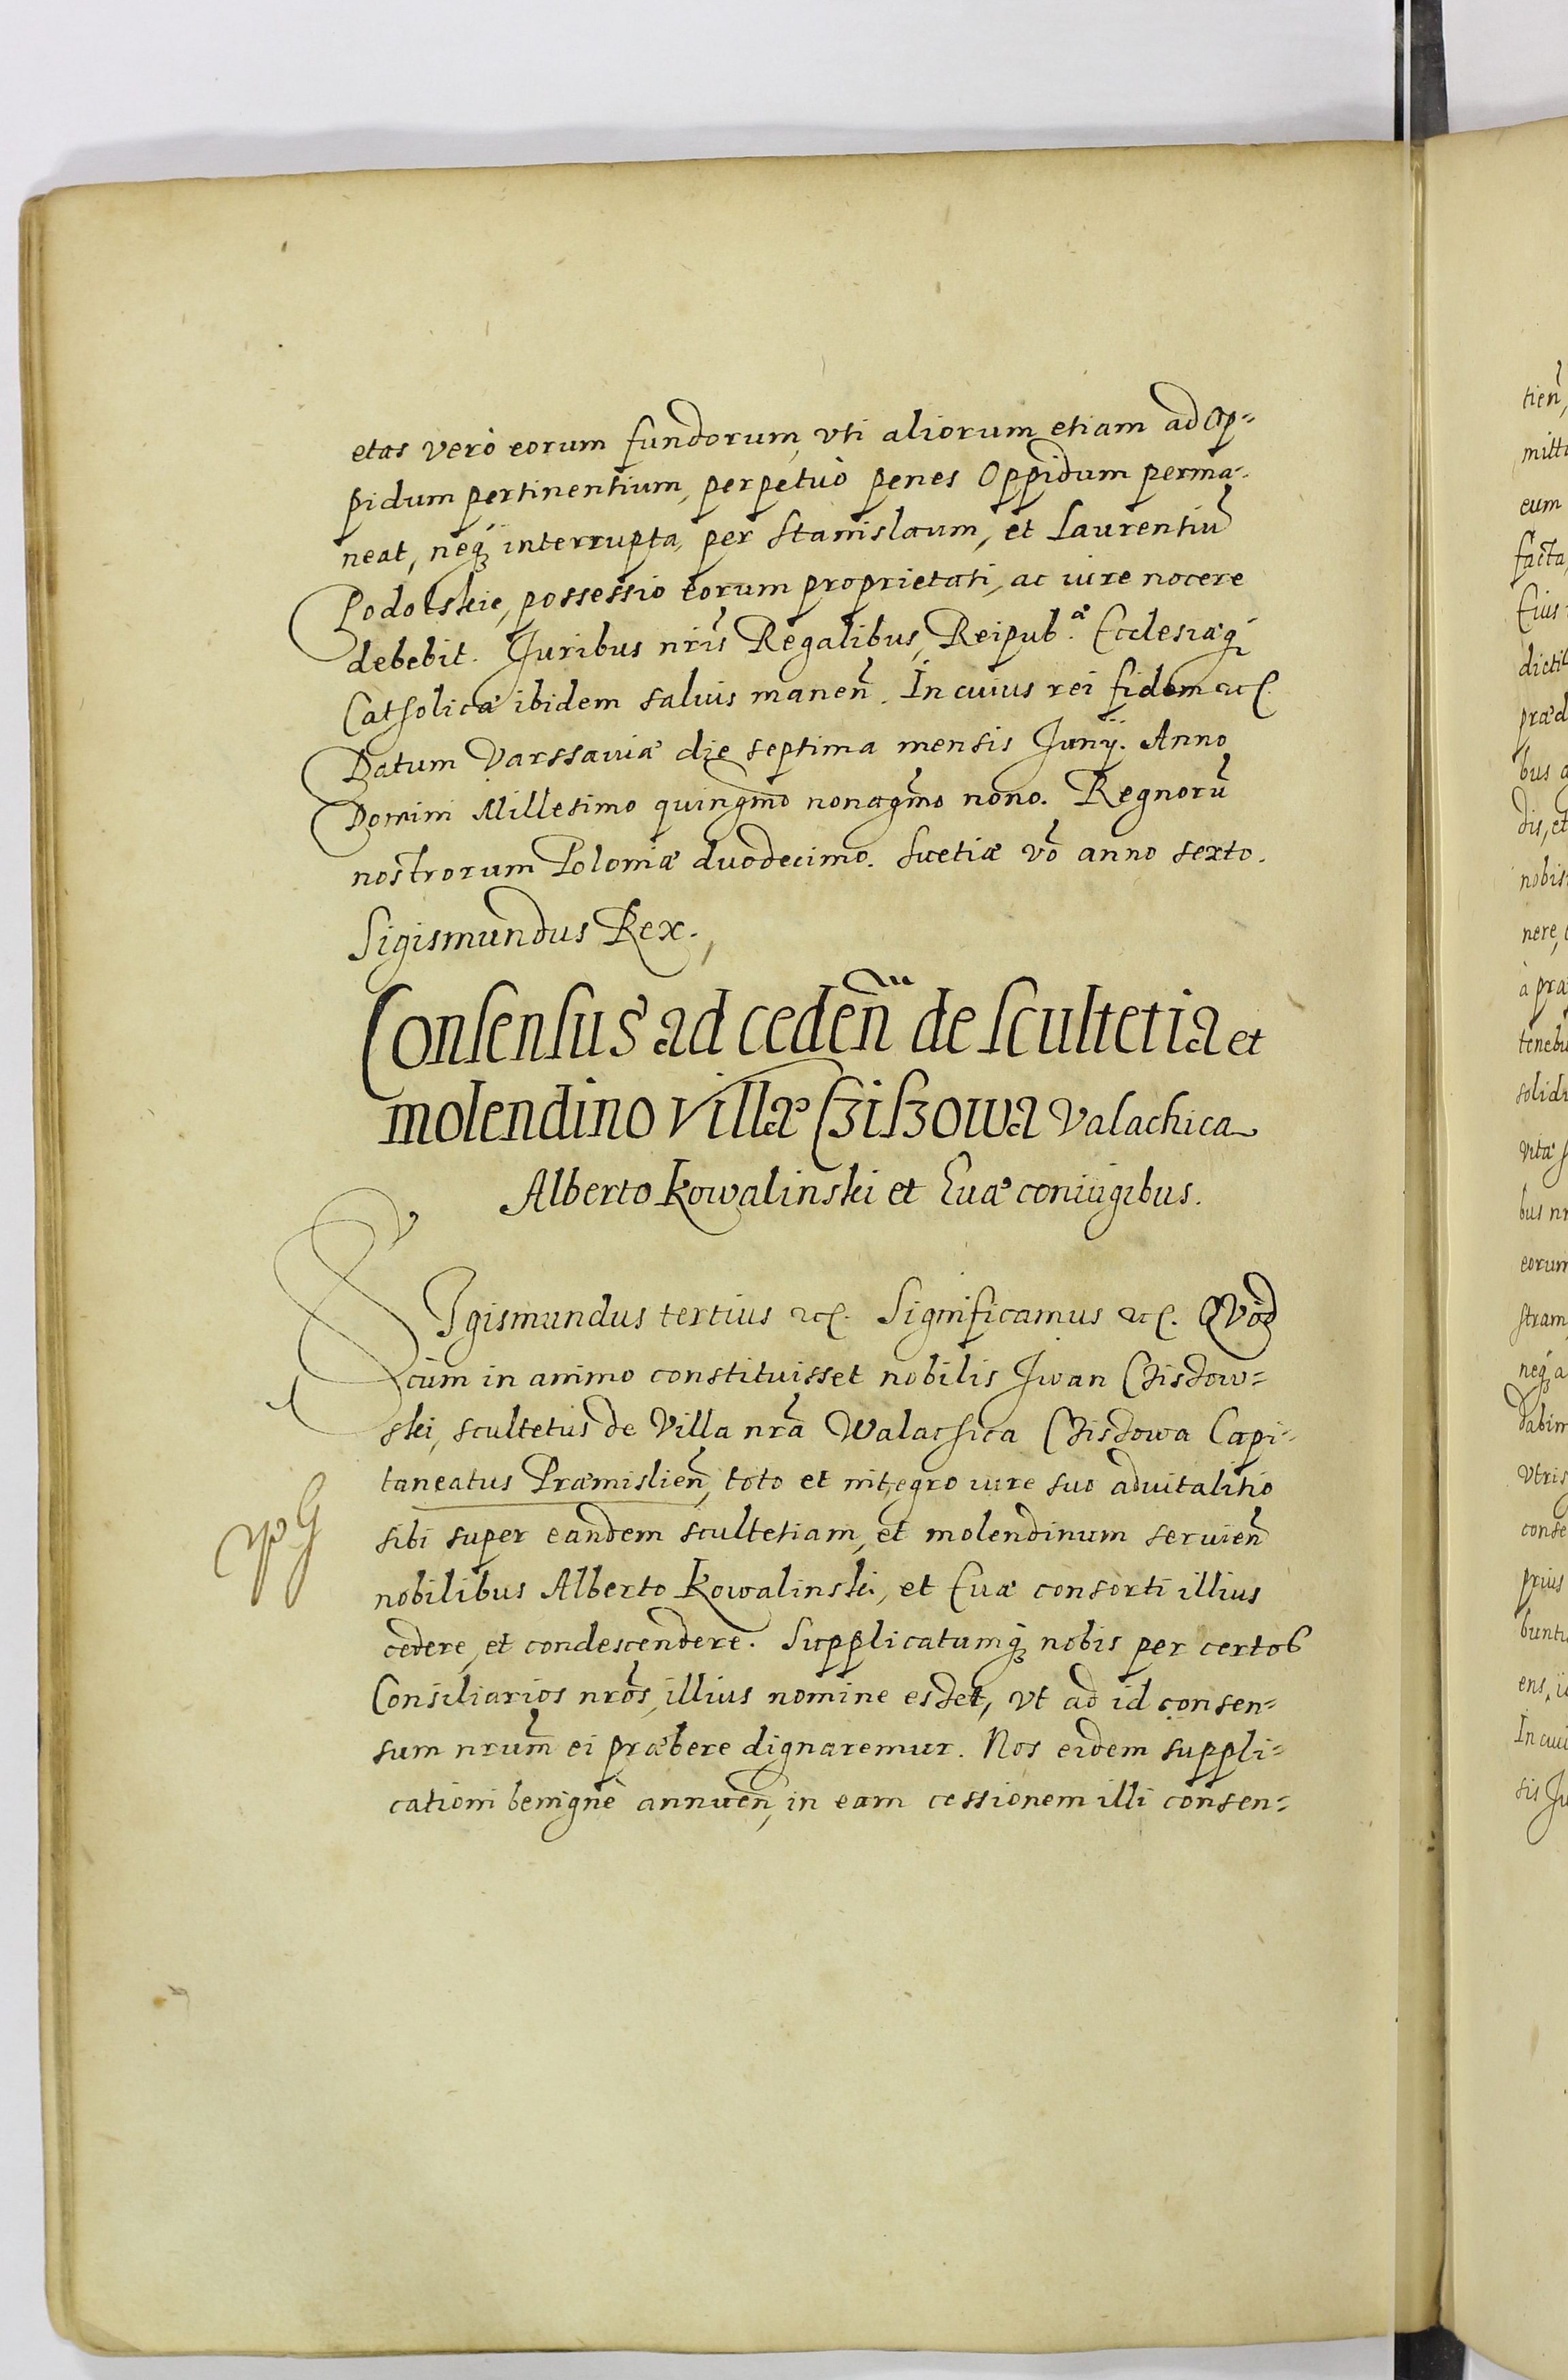 etas verò eorum fundorum, vti aliorum etiam ad Op=
pidum pertinentium, perpetuò penes Oppidum perma=
neat, neq3 interrupta, per Stanislaum, et Laurentiũ
Podolskie, possessio eorum proprietati, ac iure nocere
debebit. Juribus nrĩs Regalibus, Reipub.æ Ecclesiæq3
Catholicæ ibidem saluis maneñ. In cuius rei fidem etc.
Datum Varssauiæ die septima mensis Junÿ. Anno
Domini Millesimo quingm̃o nonagm̃o nono. Regnorũ
nostrorum Poloniæ duodecimo. Suetiæ võ anno sexto.
Sigismundus Rex.
Consensus ad cedeñ de scultetia et
molendino villæ Cziszowa Valachica
Alberto Kowalinski et Euæ coniugibus.
SIgismundus tertius etc. Significamus etc. QVòd
cùm in animo constituisset nobilis Jwan Czisżow=
ski, scultetus de Villa nrã Walachica Czisżowa Capi=
taneatus Præmislieñ, toto et integro iure suo aduitalitio
sibi super eandem scultetiam, et molendinum seruieñ
nobilibus Alberto Kowalinski, et Euæ consorti illius
cedere, et condescendere. Supplicatumq3 nobis per certos
Consiliarios nrõs, illius nomine esset, vt ad id consen=
sum nrũm ei præbere dignaremur. Nos eidem suppli=
cationi benignè annueñ, in eam cessionem illi consen=
tieñ,
mitti
eum
facta
Eius
dicti
præd
bus
dis, et
nobis
nere,
à præ
tenebu
solidi
vitæ
bus nr
eorum
stram
neq3 a
dabim
Vtris
conse
prius
buntu
ens, i
In cui
sis Ju